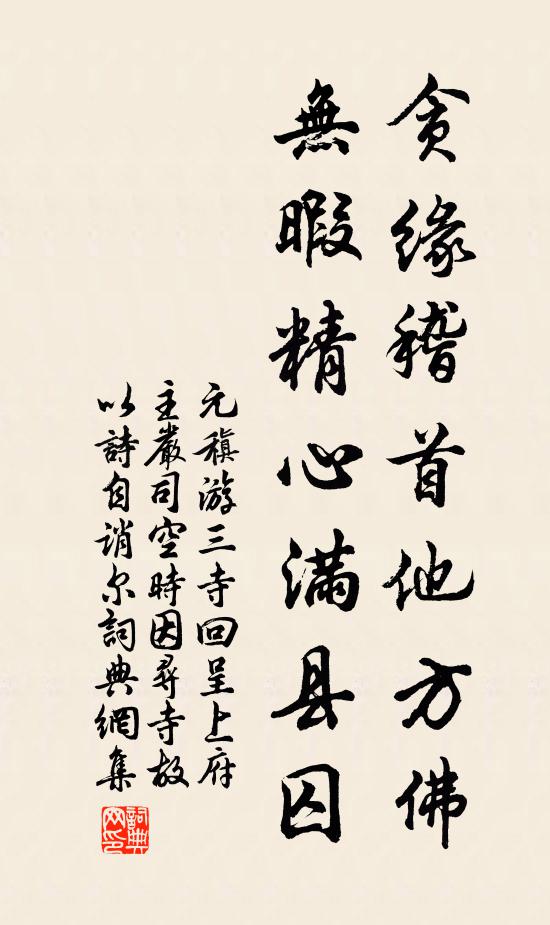 贪缘稽首他方佛
無暇精心满县囚
元稹游三寺回呈上府
主嚴司空時因尋寺故
以詩自誚尔詞典網集
詞典
网印